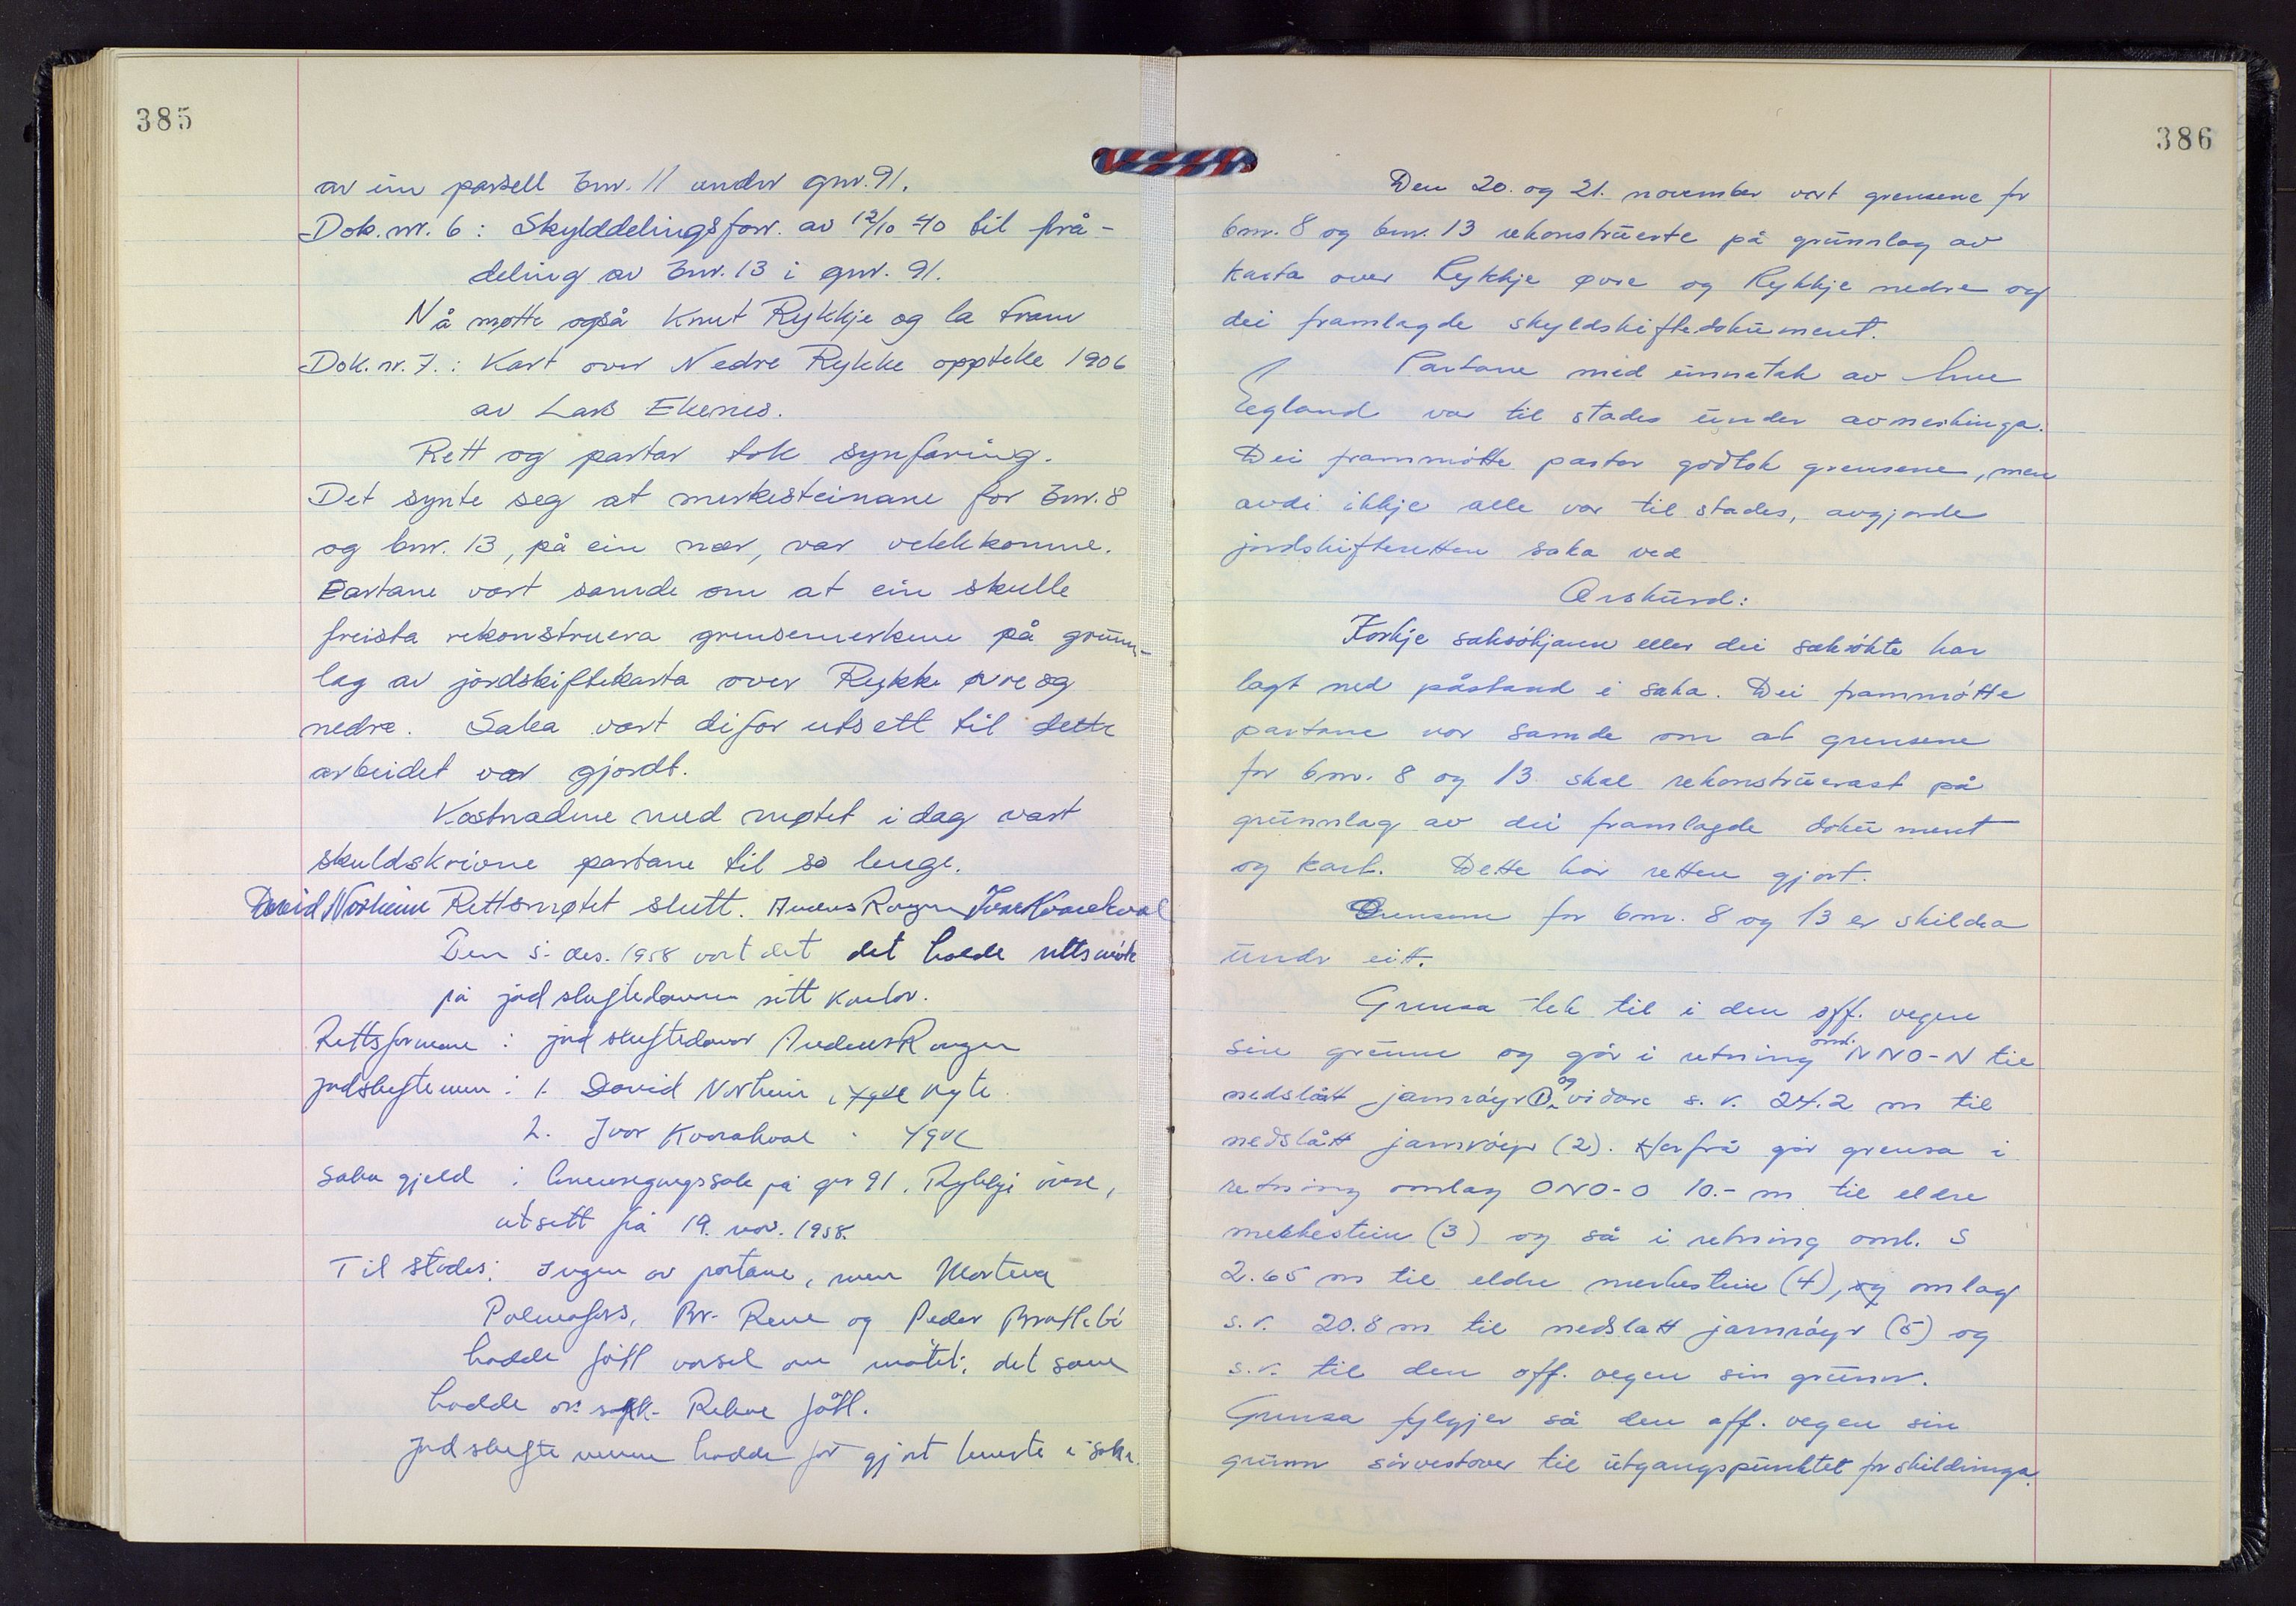 385
av ein parsell bnr. 11 under gnr. 91.
Dok. nr. 6: Skylddelingsforr. av 12/10-40 til frå-
deling av bnr. 13 i gnr. 91.
Nå møtte også Knut Rykkje og la fram
Dok. nr. 7.: Kart over Nedre Rykke oppteke 1906
av Lars Ekenes.
Rett og partar tok synfaring.
Det synte seg at merkesteinane for bnr. 8
og bnr. 13, på ein nær, var vekkkomne.
Partane vart samde om at ein skulle
freista rekonstruera grensemerkene på grunn-
lag av jordskiftekarta over Rykke øvre og
nedre. Saka vart difor utsett til dette
arbeidet var gjordt.
Kostnadene med møtet i dag vart
skuldskrivne partane til so lenge.
David Norheim Rettsmøtet slutt. Anders Rogn Ivar Kvarekval
Den 5. des. 1958 vart det det halde rettsmöte
på jordskiftedomaren sitt kontor.
Rettsformann: jordskiftedomar Anders Rogn
jordskiftemenn: 1. David Norheim, Nyte
2. Ivar Kvarekval
Saka gjeld: gnr 91, Rykkje övre,
utsett frå 19. nov. 1958.
Til stades: Ingen av partane, men
og Peder
hadde fått varsel om mötet; det same
hadde fått.
Jordskiftemennene hadde för gjort teneste i saka.
386
Den 20. og 21. november vart grensene for
bnr. 8 og bnr. 13 rekonstruerte på grunnlag av
karta over Rykkje øvre og Rykkje nedre og
dei framlagde skyldskiftedokument.
Partane med einnatak av
Eegland var til stades under avmerkinga.
Dei frammötte partar godtok grensene, men
avdi ikkje alle var til stades, avgjorde
jordskifteretten saka ved
Orskurd:
Korkje saksökjaren eller dei saksökte har
lagt ned påstand i saka. Dei frammötte
partane var samde om at grensene
for bnr. 8 og 13 skal rekonstruerast på
grunnlag av dei framlagde dokument
og kart. Dette har retten gjort.
Grensene for bnr. 8 og 13 er skildra
under eitt.
Grensa tek til i den off. vegen
sin grunn og går i retning oml. NNO-N til
nedslått jarnröyr (1) og vidare s. r. 24.2 m til
nedslått jarnröyr (2). Herfrå går grensa i
retning omlag ONO-O 10.- m til eldre
merkestein (3) og så i retning oml. S
2.65 m til eldre merkestein (4), og omlag
s.r. 20.8 m til nedslått jarnröyr (5) og
s.r. til den off. vegen sin grunn.
Grensa fylgjer så den off. vegen sin
grunn sörvestover til utgangspunktet for skildringa.